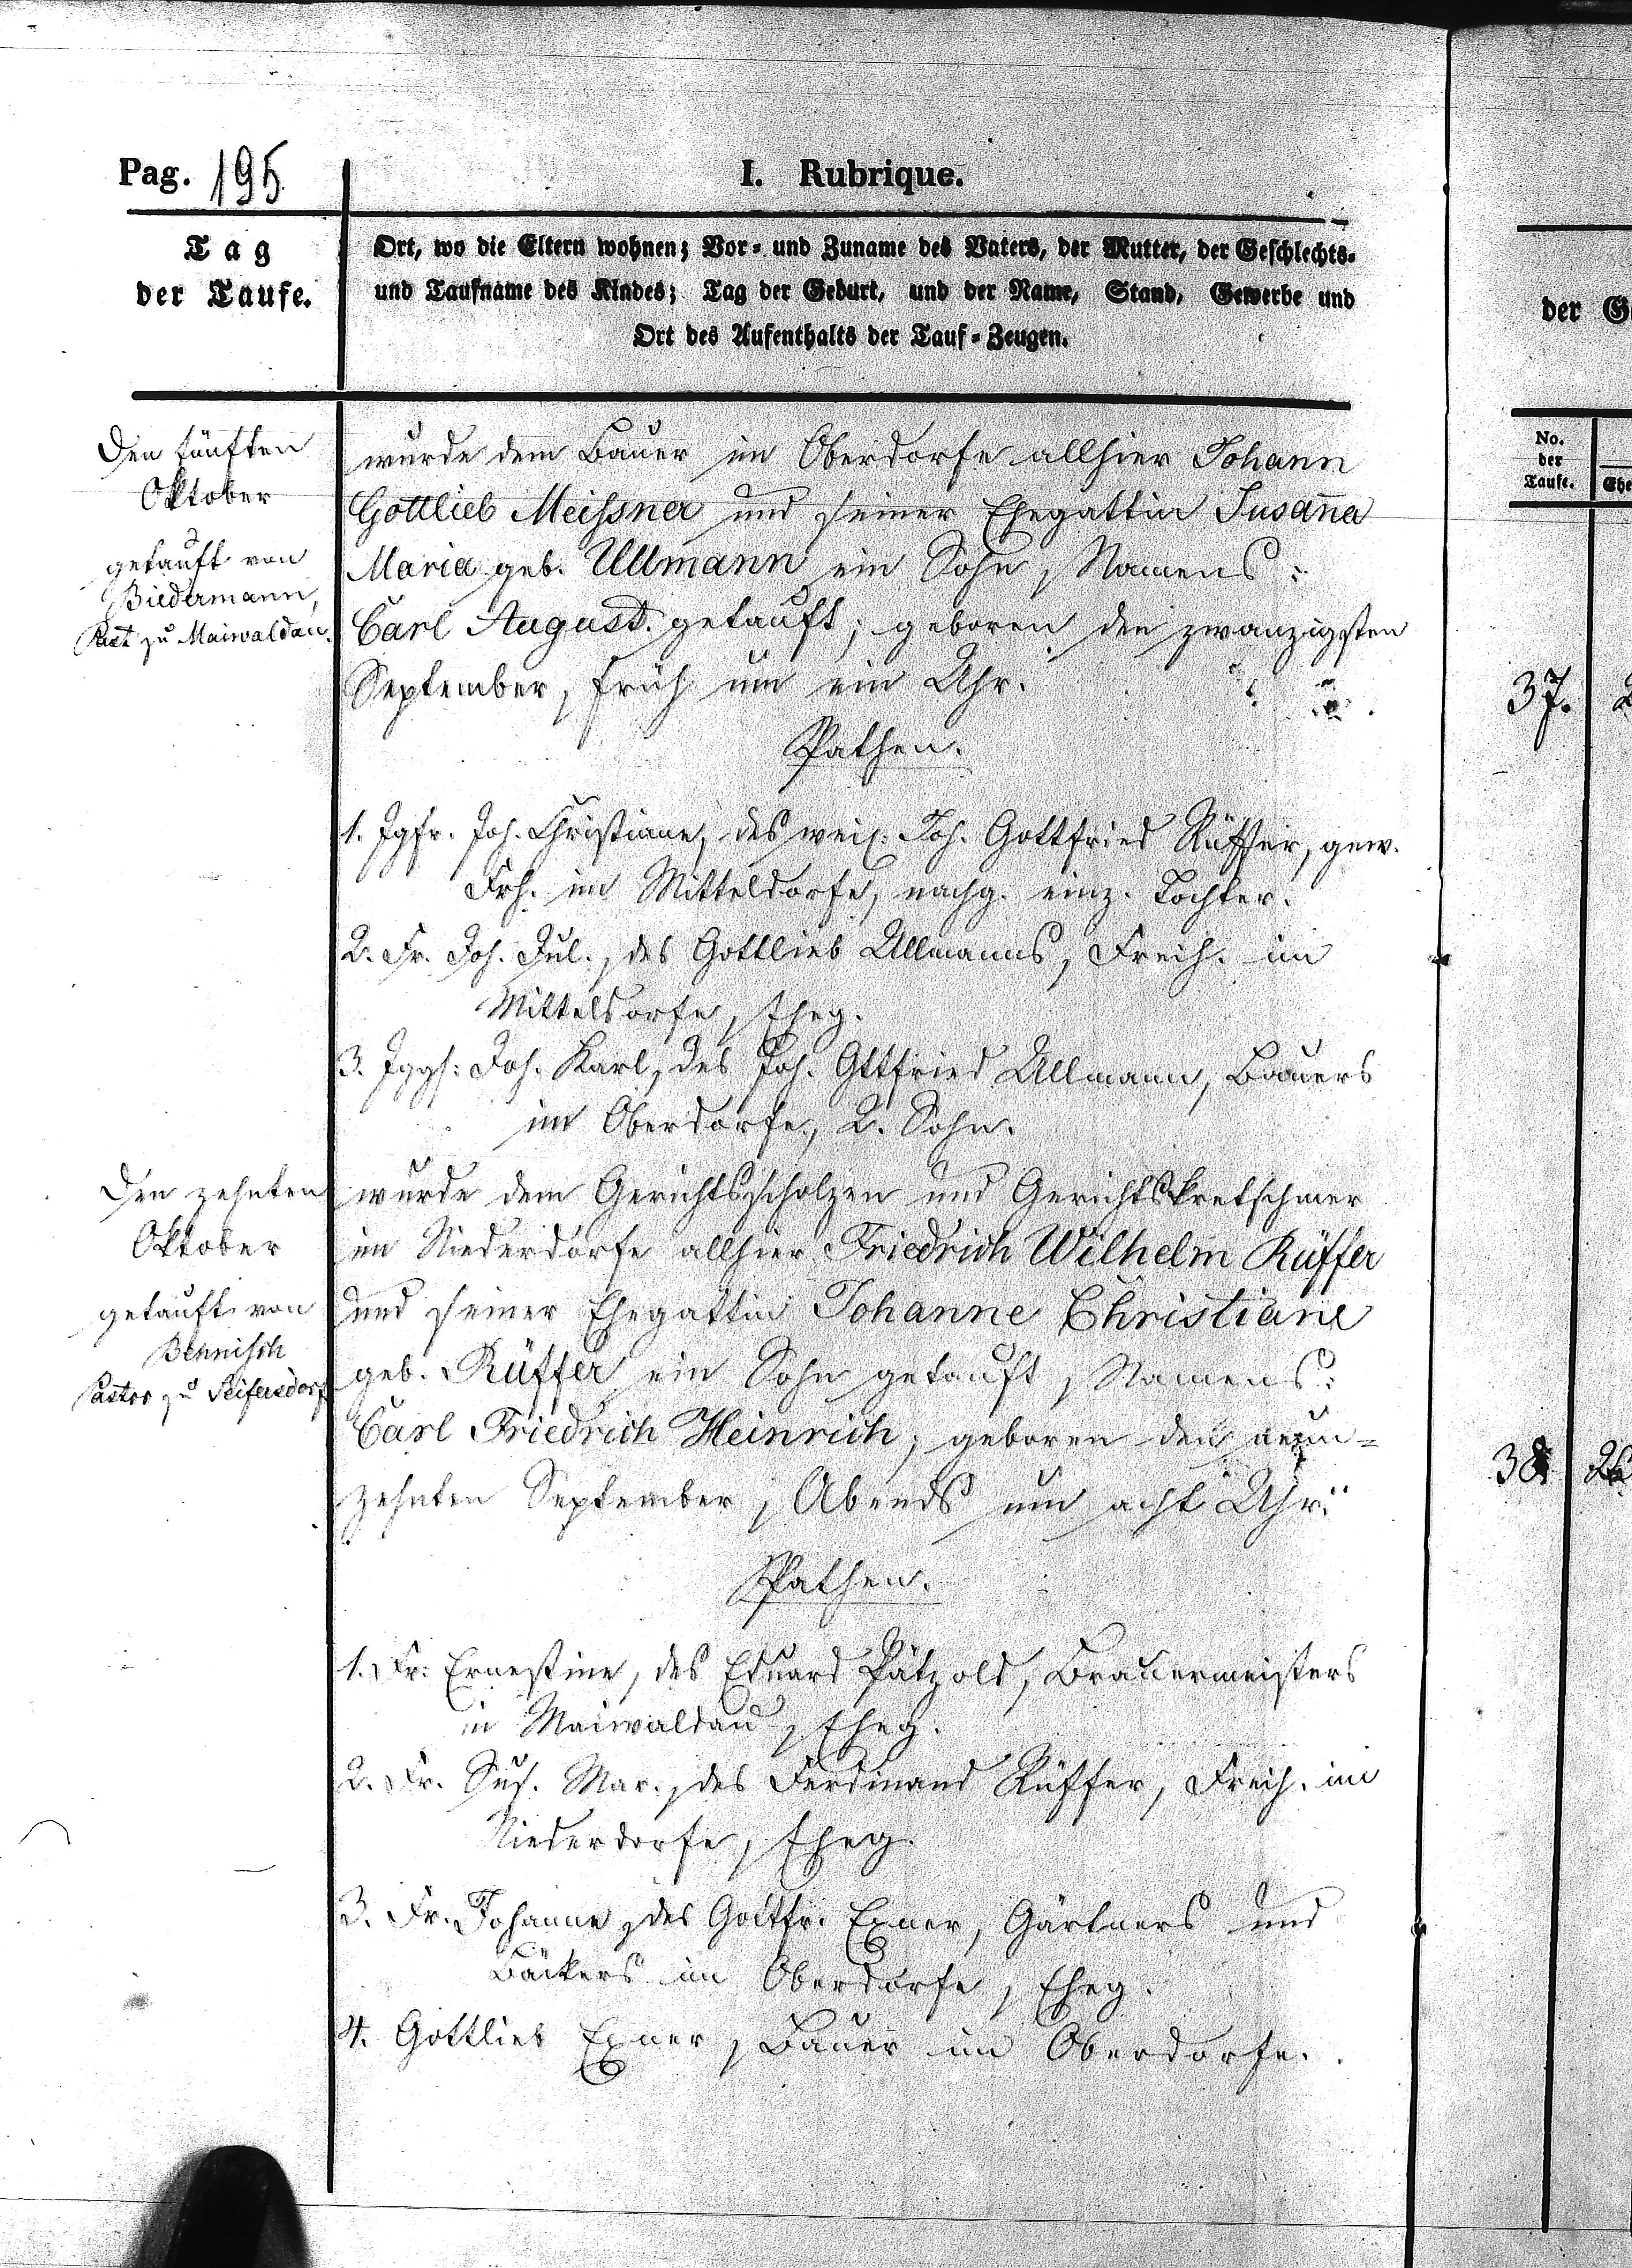 Pag. 195
I. Rubrique.
Tag
der Taufe.
Ort, wo die Eltern wohnen; Vor- und Zuname des Vaters, der Mutter, der Geschlechts-
und Taufname des Kindes; Tag der Geburt, und der Name, Stand, Gewerbe und
Ort des Aufenthalts der Tauf-Zeugen.
Den fünften
Oktober
getauft von
Biedermann,
Past zu Maiwaldau.
wurde dem Bauer im Oberdorfe allhier Johann
Gottlieb Meissner und seiner Ehegattin Susan̄a
Maria geb. Ullmann ein Sohn, Namens:
Carl August getauft; geboren den zwanzigsten
September, früh um ein Uhr.
Pathen.
1. Jgfr. Joh. Christiane, des weil. Joh. Gottfried Rüffer, gew.
Frh. im Mitteldorfe, nachg. einz. Tochter.
2. Fr. Joh. Jul., des Gottlieb Ullmanns, Freih. im
Mitteldorfe, Eheg.
3. Jggs: Joh. Karl, des Joh. Gttfried Ullmann, Bauers
im Oberdorfe, 2. Sohn.
Den zehnten
Oktober
getauft von
Behnisch
Pastor zu Seifersdorf
wurde dem Gerichtsscholzen und Gerichtskretschmer
im Niederdorfe allhier Friedrich Wilhelm Rüffer
und seiner Ehegattin Johanne Christiane
geb. Rüffer ein Sohn getauft, Namens:
Carl Friedrich Heinrich; geboren den neun-
zehnten September, Abends um acht Uhr.
Pathen.
1. Fr. Ernestine, des Eduard Pätzold, Brauermeisters
in Maiwaldau, Eheg.
2. Fr. Sus. Mar., des Ferdinand Rüffer, Freih. im
Niederdorfe, Eheg.
3. Fr. Johanne, des Gottfr. Exner, Gärtners und
Bäckers im Oberdorfe, Eheg.
4. Gottlieb Exner, Bauer im Oberdorfe.
der
No.
der
Taufe.
37.
38